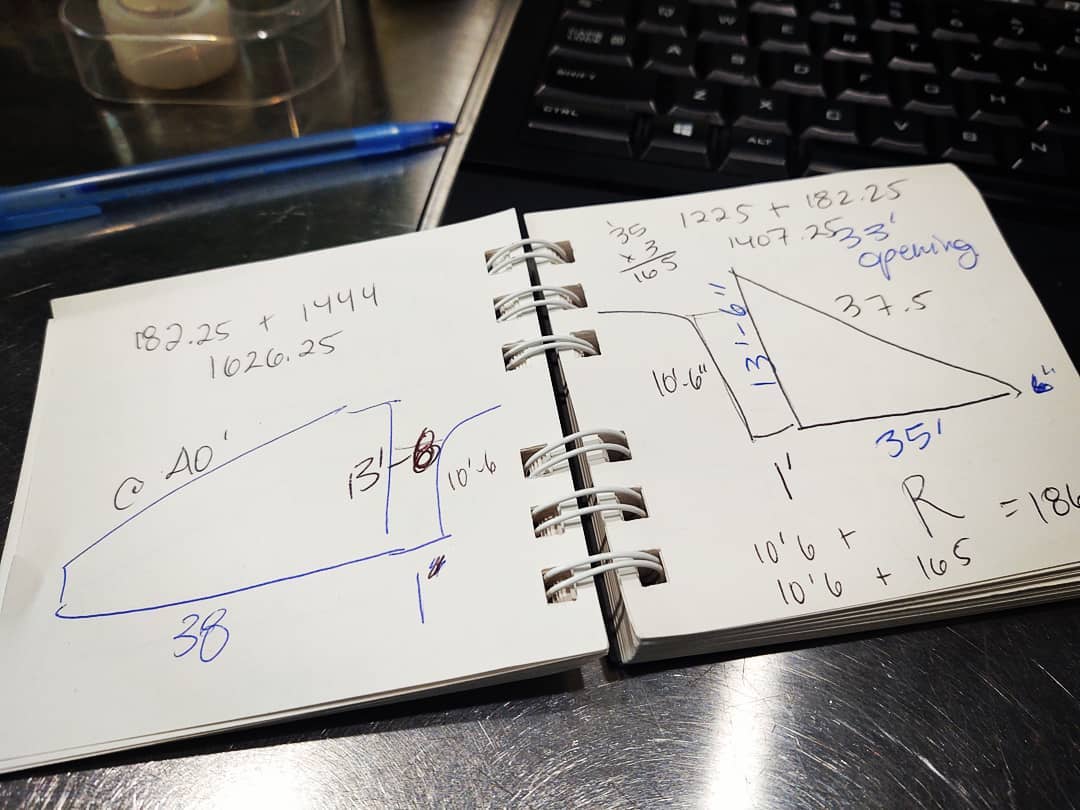 182.25 + 1444
1626.25
C 40'
13'-6
10'-6
1"
38
35
x 3
165
1225 + 182.25
1407.25
33'
opening
37.5
13'-6"
10'-6"
6"
35'
1'
10'6 + R = 186
10'6 + 165
W
A
S
D
Z
X
C
V
B
N
H
CTRL
ALT